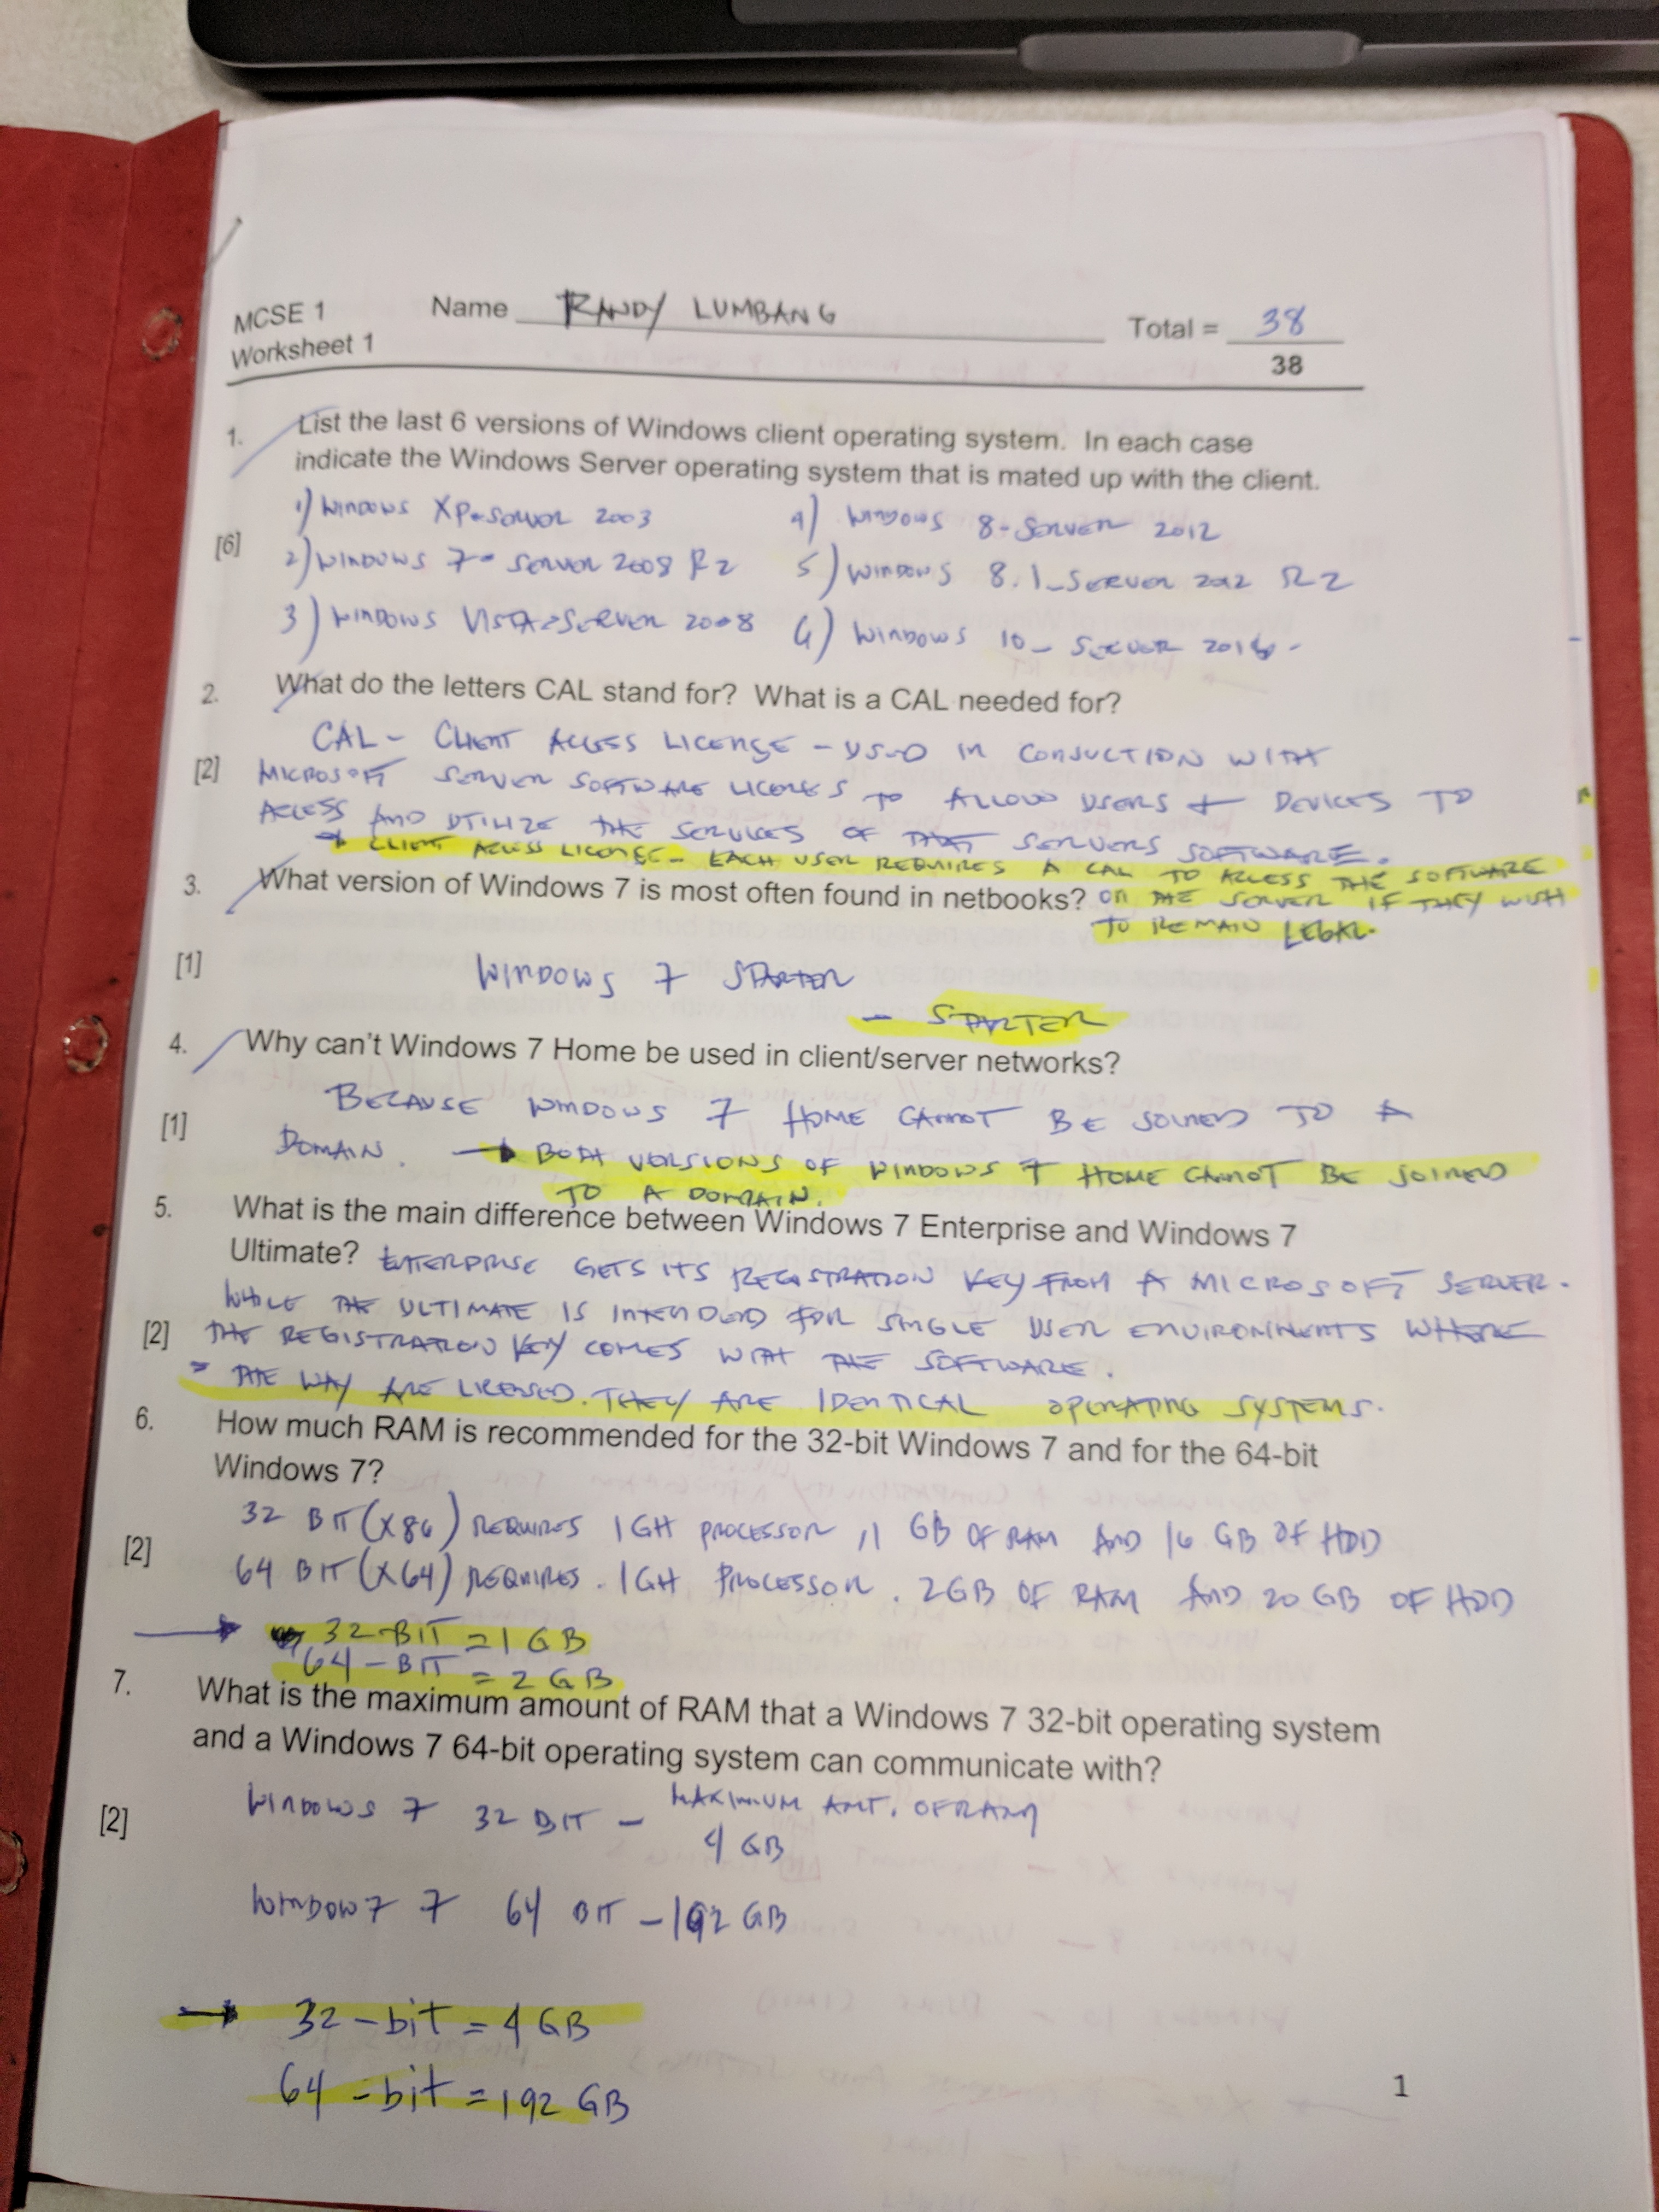 MCSE 1
Worksheet 1
Name RANDY LUMBANG
Total = 38
38
1. List the last 6 versions of Windows client operating system. In each case
indicate the Windows Server operating system that is mated up with the client.
[6]
1) WINDOWS XP - SERVER 2003
2) WINDOWS 7 - SERVER 2008 R2
3) WINDOWS VISTA - SERVER 2008
4) WINDOWS 8 - SERVER 2012
5) WINDOWS 8.1 - SERVER 2012 R2
6) WINDOWS 10 - SERVER 2016
2. What do the letters CAL stand for? What is a CAL needed for?
CAL - CLIENT ACCESS LICENSE - USED IN CONJUCTION WITH
[2] MICROSOFT SERVER SOFTWARE LICENSES TO ALLOW USERS + DEVICES TO
ACCESS AND UTILIZE THE SERVICES OF THAT SERVERS SOFTWARE.
CLIENT ACCESS LICENSE - EACH USER REQUIRES A CAL TO ACCESS THE SOFTWARE
ON THE SERVER IF THEY WISH
TO REMAIN LEGAL.
3. What version of Windows 7 is most often found in netbooks?
[1] WINDOWS 7 STARTER
- STARTER
4. Why can't Windows 7 Home be used in client/server networks?
BECAUSE WINDOWS 7 HOME CANNOT BE JOINED TO A
[1] DOMAIN. → BOTH VERSIONS OF WINDOWS 7 HOME CANNOT BE JOINED
TO A DOMAIN.
5. What is the main difference between Windows 7 Enterprise and Windows 7
Ultimate? ENTERPRISE GETS ITS REGISTRATION KEY FROM A MICROSOFT SERVER.
WHILE THE ULTIMATE IS INTENDED FOR SINGLE USER ENVIRONMENTS WHERE
[2] THE REGISTRATION KEY COMES WITH THE SOFTWARE.
- THE WAY ARE LICENSED. THEY ARE IDENTICAL OPERATING SYSTEMS.
6. How much RAM is recommended for the 32-bit Windows 7 and for the 64-bit
Windows 7?
32 BIT (X86) REQUIRES 1GH PROCESSOR, 1 GB OF RAM AND 16 GB OF HDD
[2] 64 BIT (X64) REQUIRES. 1GH PROCESSOR. 2GB OF RAM AND 20 GB OF HDD
→ 32-BIT = 1 GB
64-BIT = 2 GB
7. What is the maximum amount of RAM that a Windows 7 32-bit operating system
and a Windows 7 64-bit operating system can communicate with?
[2] WINDOWS 7 32 BIT - MAXIMUM AMT. OF RAM
4 GB
WINDOW7 7 64 BIT - 192 GB
→ 32-bit = 4 GB
64-bit = 192 GB
1